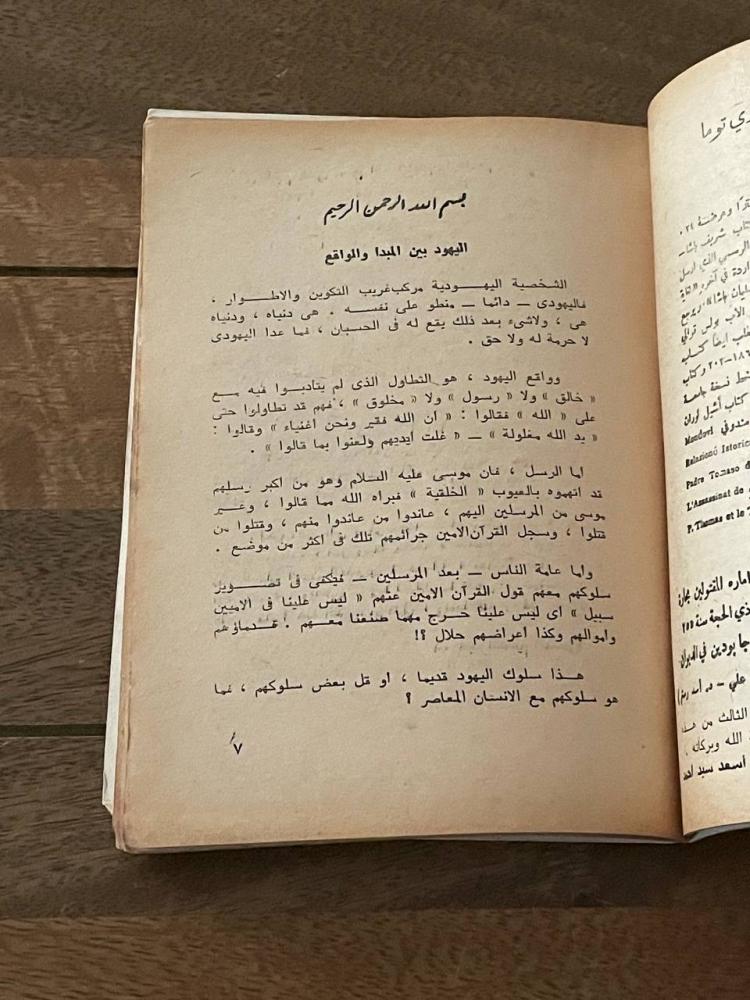 بسم الله الرحمن الرحيم
اليهود بين المبدا والمواقع
الشخصية اليهــودية مركب غريب التكوين والاطــوار ،
فاليهودى — دائما — منطو على نفســه . هى دنياه ، ودنياه
هى ، ولاشىء بعد ذلك يقع له فى الحسبان ، فما عدا اليهودى
لا حرمة له ولا حق .
وواقع اليهود ، هو التطاول الذى لم يتادبــوا فيه مــع
« خالق » ولا « رسول » ولا « مخلوق » ، فهم قد تطاولوا حتى
على « الله » فقالوا : « ان الله فقير ونحن اغنياء » وقالوا :
« يد الله مغلولة » — « غلت ايديهم ولعنوا بما قالوا » .
اما الرسل ، فان موسى عليه السلام وهو من اكبر رسلهم
قد اتهموه بالعيوب « الخلقية » فبراه الله مما قالوا ، وغــير
موسى من المرسلين اليهم ، عاندوا من عاندوا منهم ، وقتلوا من
قتلوا ، وسجل القرآن الامين جرائمهم تلك فى اكثر من موضع .
واما عامة الناس — بعد المرسلين — فيكفى فى تصــوير
سلوكهم معهم قول القرآن الامين عنهم « ليس علينا فى الاميين
سبيل » اى ليس علينا حرج مهما صنعنا معــهم . فــدماؤهم
واموالهم وكذا اعراضهم حلال ؟!
هــذا سلوك اليهود قديما ، او قل بعض سلوكهم ، فما
هو سلوكهم مع الانسان المعاصر ؟
٧
توما
كتاب شريف باشا
الاب بولس
نسخة جامعة
كتاب أشيل لوران
Mondovi
Relazioni Istorica
Padre Tomaso
L'Assassinat de
P. Thomas et le
ذي الحجة سنة
الثالث من هذه
الله وبركاته ،
اسعد سيد احمد